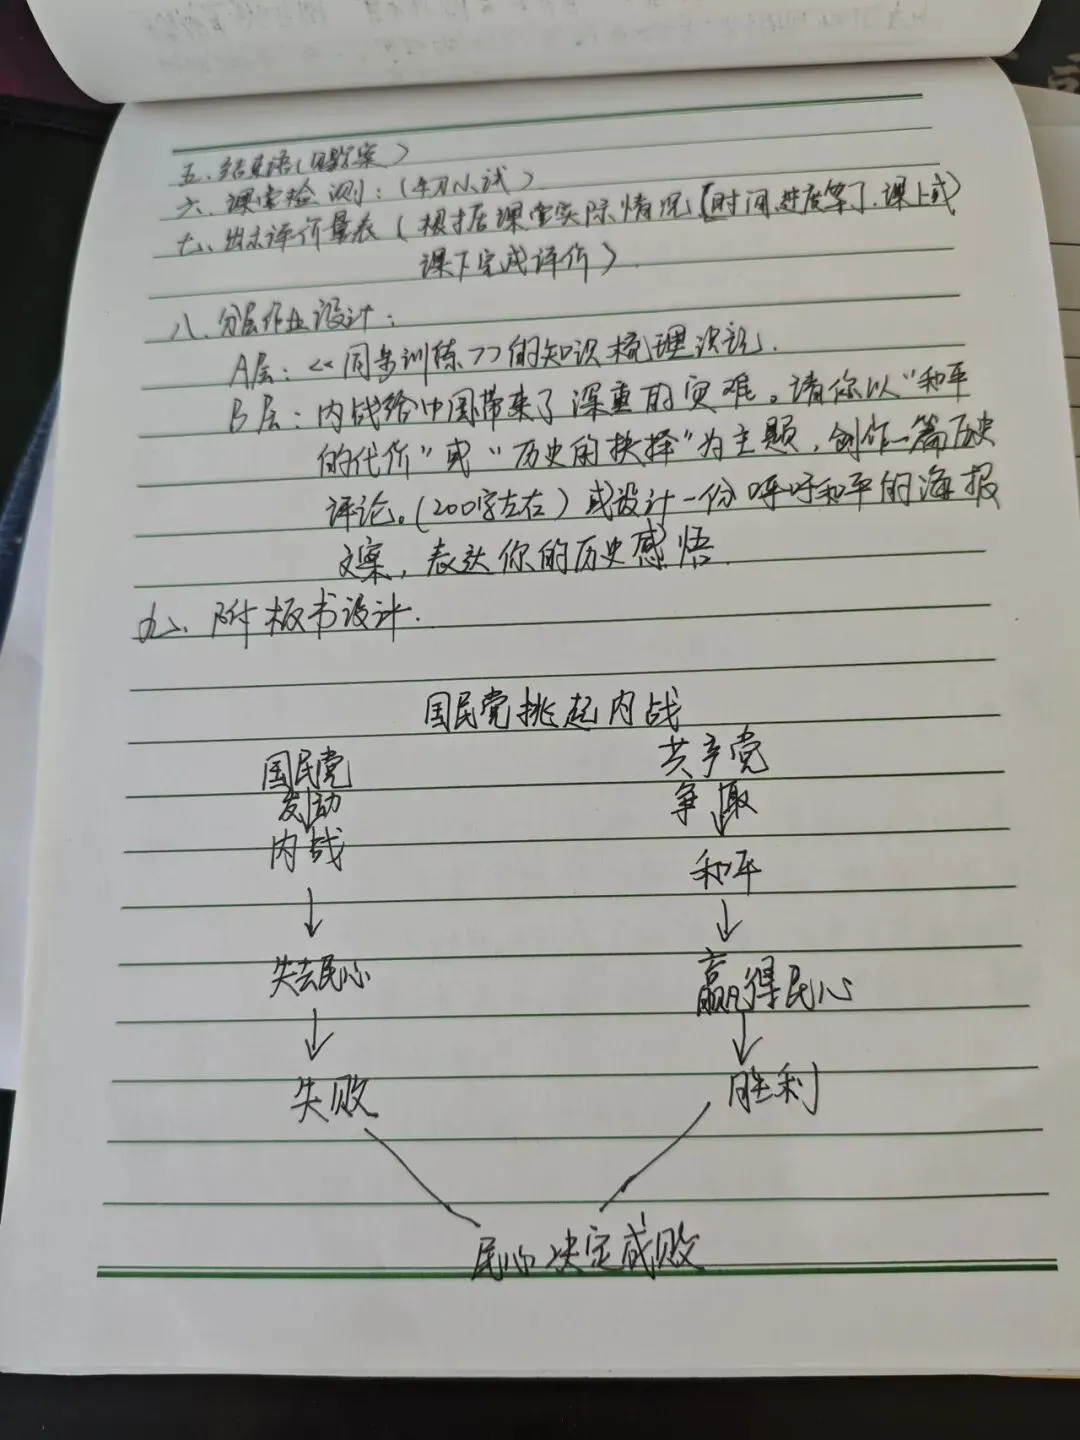 五、结束语（见教案）
六、课堂检测：（牛刀小试）
七、出示评价量表（根据课堂实际情况【时间、进度等】，课上或
课下完成评价）
八、分层作业设计：
A层：《同步训练》的知识梳理识记.
B层：内战给中国带来了深重的灾难。请你以“和平
的代价”或“历史的抉择”为主题，创作一篇历史
评论。（200字左右）或设计一份呼吁和平的海报
文案，表达你的历史感悟.
九、附板书设计.
国民党挑起内战
国民党 共产党
发动 争取
内战 和平
↓ ↓
失去民心 赢得民心
↓ ↓
失败 胜利
民心决定成败